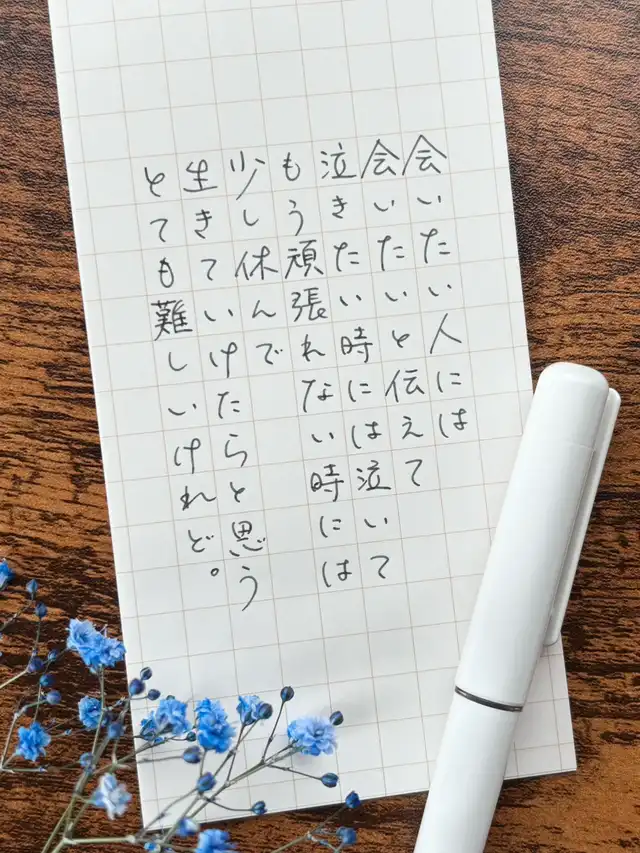 会いたい人には
会いたいと伝えて
泣きたい時には泣いて
もう頑張れない時には
少し休んで
生きていけたらと思う
とても難しいけれど。